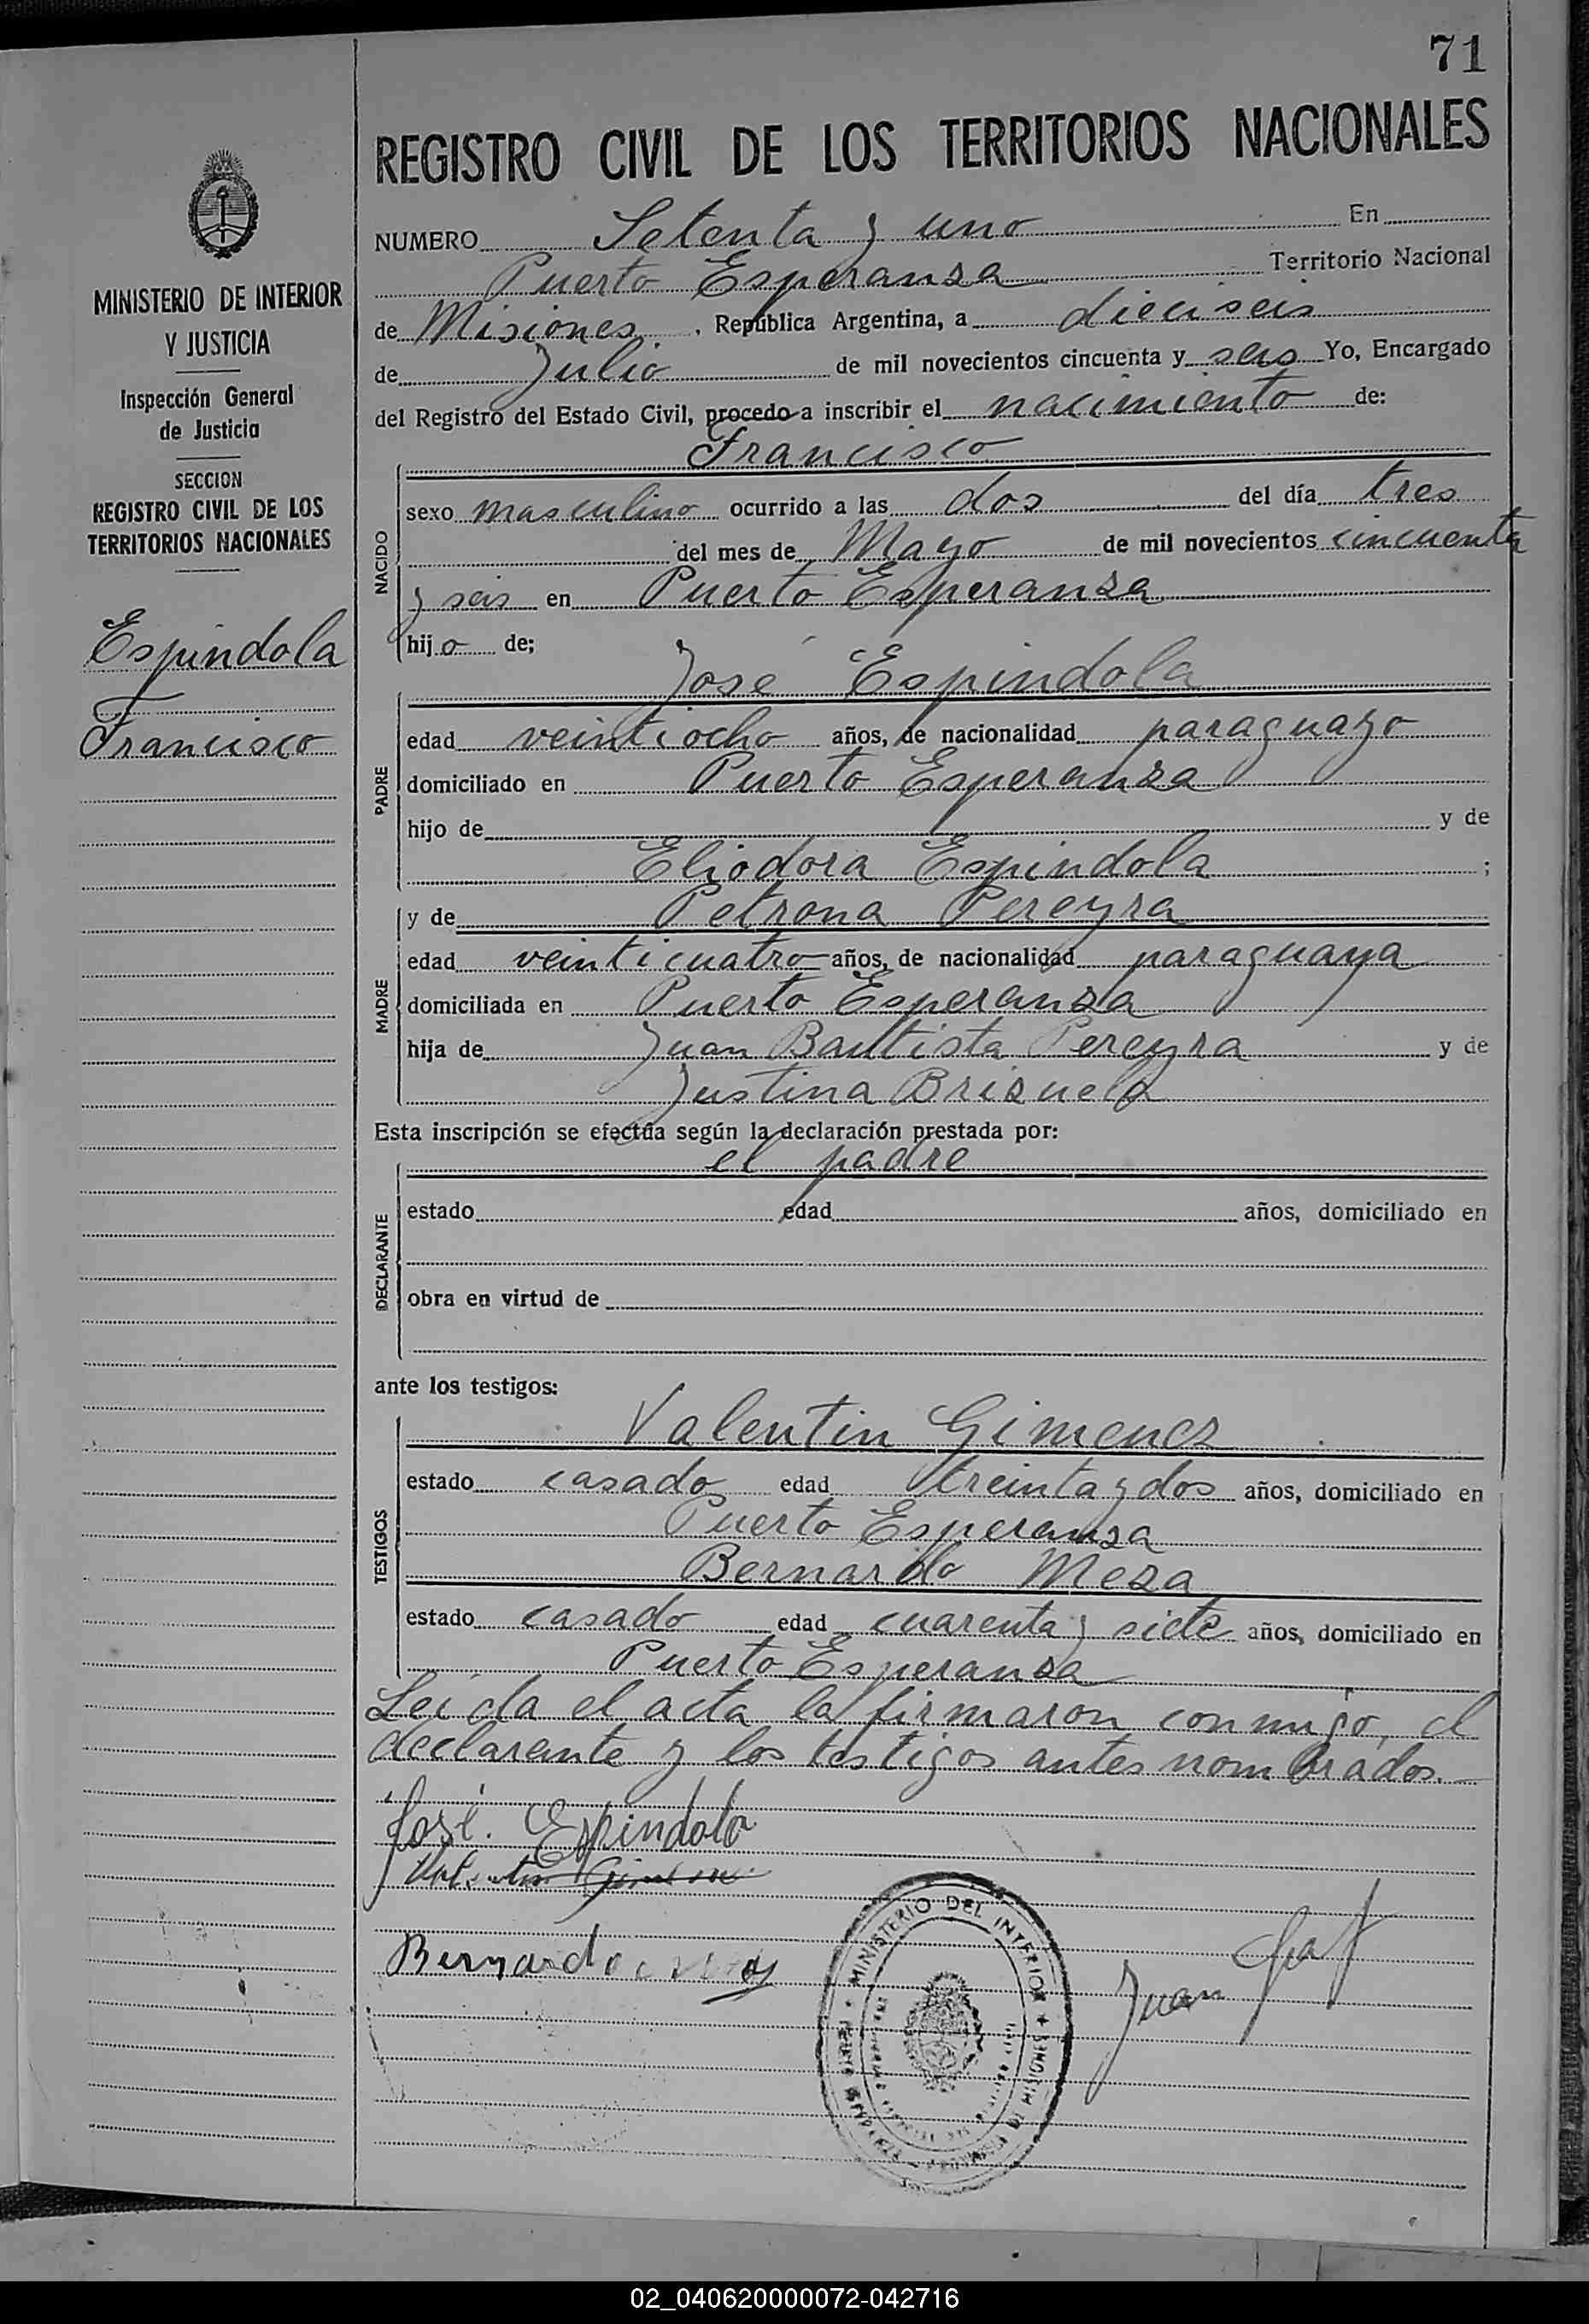 71
REGISTRO CIVIL DE LOS TERRITORIOS NACIONALES
MINISTERIO DE INTERIOR
Y JUSTICIA
Inspección General
de Justicia
SECCION
REGISTRO CIVIL DE LOS
TERRITORIOS NACIONALES
Espindola
Francisco
NUMERO Setenta y uno En
Puerto Esperanza Territorio Nacional
de Misiones, República Argentina, a dieciseis
de Julio de mil novecientos cincuenta y seis Yo, Encargado
del Registro del Estado Civil, procedo a inscribir el nacimiento de:
NACIDO
Francisco
sexo masculino ocurrido a las dos del día tres
del mes de Mayo de mil novecientos cincuenta
y seis en Puerto Esperanza
hijo de;
PADRE
José Espindola
edad veintiocho años, de nacionalidad paraguayo
domiciliado en Puerto Esperanza
hijo de y de
Eliodora Espindola ;
MADRE
y de Petrona Pereyra
edad veinticuatro años, de nacionalidad paraguaya
domiciliada en Puerto Esperanza
hija de Juan Bautista Pereyra y de
Justina Brizuela
Esta inscripción se efectúa según la declaración prestada por:
DECLARANTE
el padre
estado edad años, domiciliado en
obra en virtud de
ante los testigos:
TESTIGOS
Valentin Gimenez
estado casado edad treinta y dos años, domiciliado en
Puerto Esperanza
Bernardo Meza
estado casado edad cuarenta y siete años, domiciliado en
Puerto Esperanza
Leida el acta la firmaron conmigo, el
declarante y los testigos antes nombrados.-
José. Espindola
Bernardo
Juan
MINISTERIO DEL INTERIOR
02_040620000072-042716